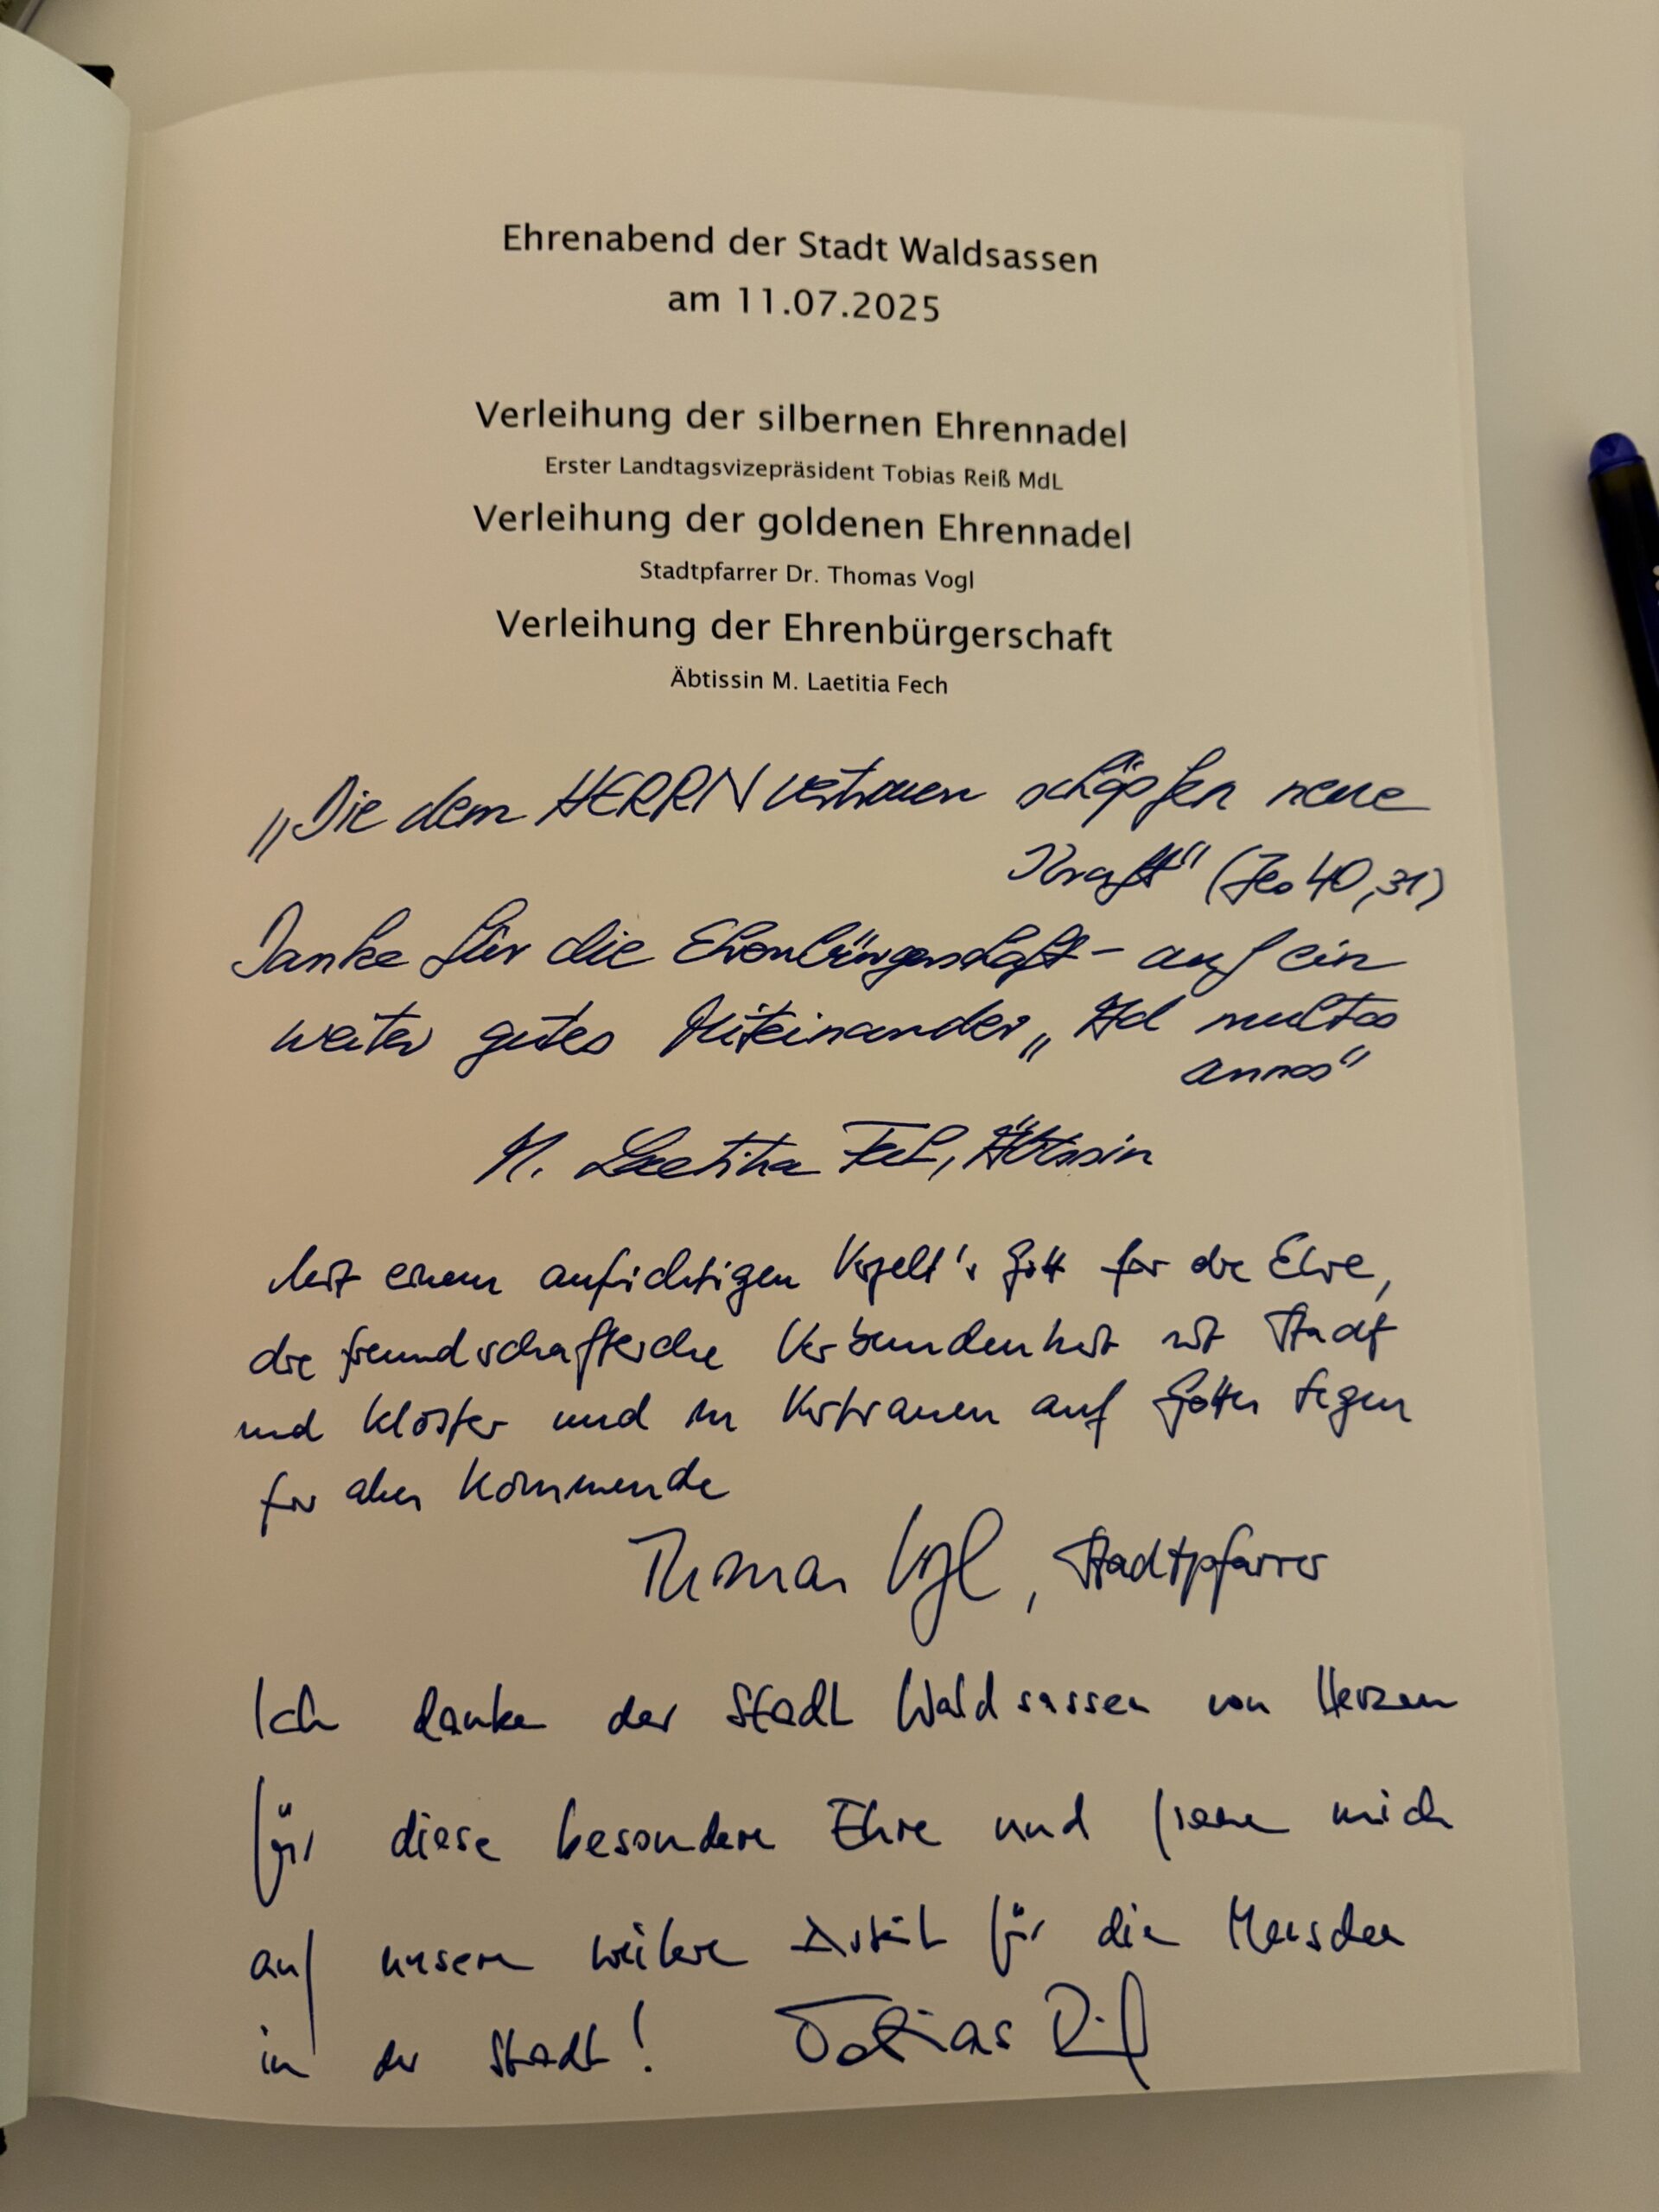 Ehrenabend der Stadt Waldsassen
am 11.07.2025
Verleihung der silbernen Ehrennadel
Erster Landtagsvizepräsident Tobias Reiß MdL
Verleihung der goldenen Ehrennadel
Stadtpfarrer Dr. Thomas Vogl
Verleihung der Ehrenbürgerschaft
Äbtissin M. Laetitia Fech
„Die dem HERRN vertrauen schöpfen neue
Kraft“ (Jes 40,31)
Danke für die Ehrenbürgerschaft – auf ein
weiter gutes Miteinander „Ad multos
annos“
M. Laetitia Fech, Äbtissin
Mit einem aufrichtigen Vergelt's Gott für die Ehre,
die freundschaftliche Verbundenheit mit Stadt
und Kloster und im Vertrauen auf Gottes Segen
für alles Kommende
Thomas Vogl, Stadtpfarrer
Ich danke der Stadt Waldsassen von Herzen
für diese besondere Ehre und freue mich
auf unsere weitere Arbeit für die Menschen
in der Stadt! Tobias Reiß